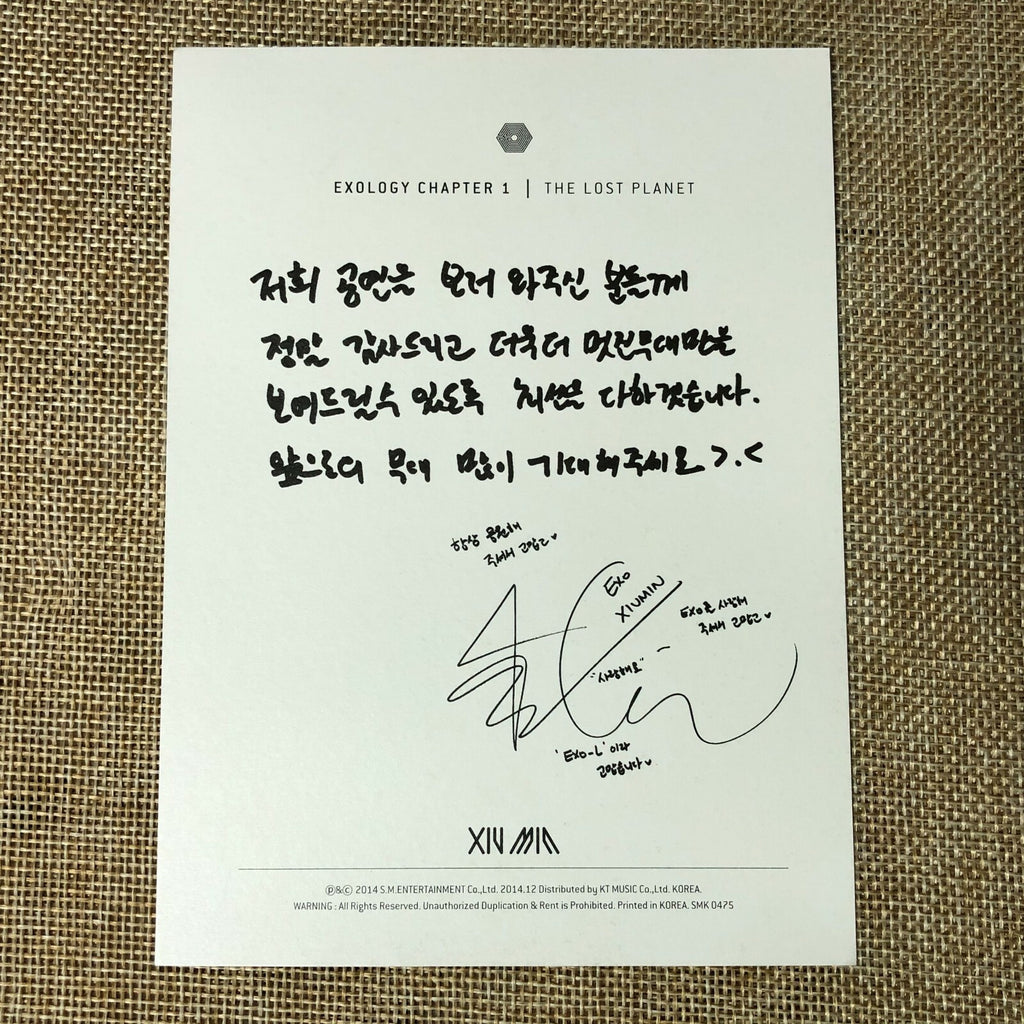 EXOLOGY CHAPTER 1 | THE LOST PLANET
저희 공연을 보러 와주신 분들께
정말 감사드리고 더욱더 멋진무대만을
보여드릴수 있도록 최선을 다하겠습니다.
앞으로의 무대 많이 기대해주세요 >.<
항상 응원해
주셔서 고맙고♥
EXO
XIUMIN
EXO를 사랑해
주셔서 고맙고♥
"사랑해요"
'EXO-L'이라
고맙습니다♥
XIUMIN
℗&© 2014 S.M.ENTERTAINMENT Co.,Ltd. 2014.12 Distributed by KT MUSIC Co.,Ltd. KOREA.
WARNING : All Rights Reserved. Unauthorized Duplication & Rent is Prohibited. Printed in KOREA. SMK 0475